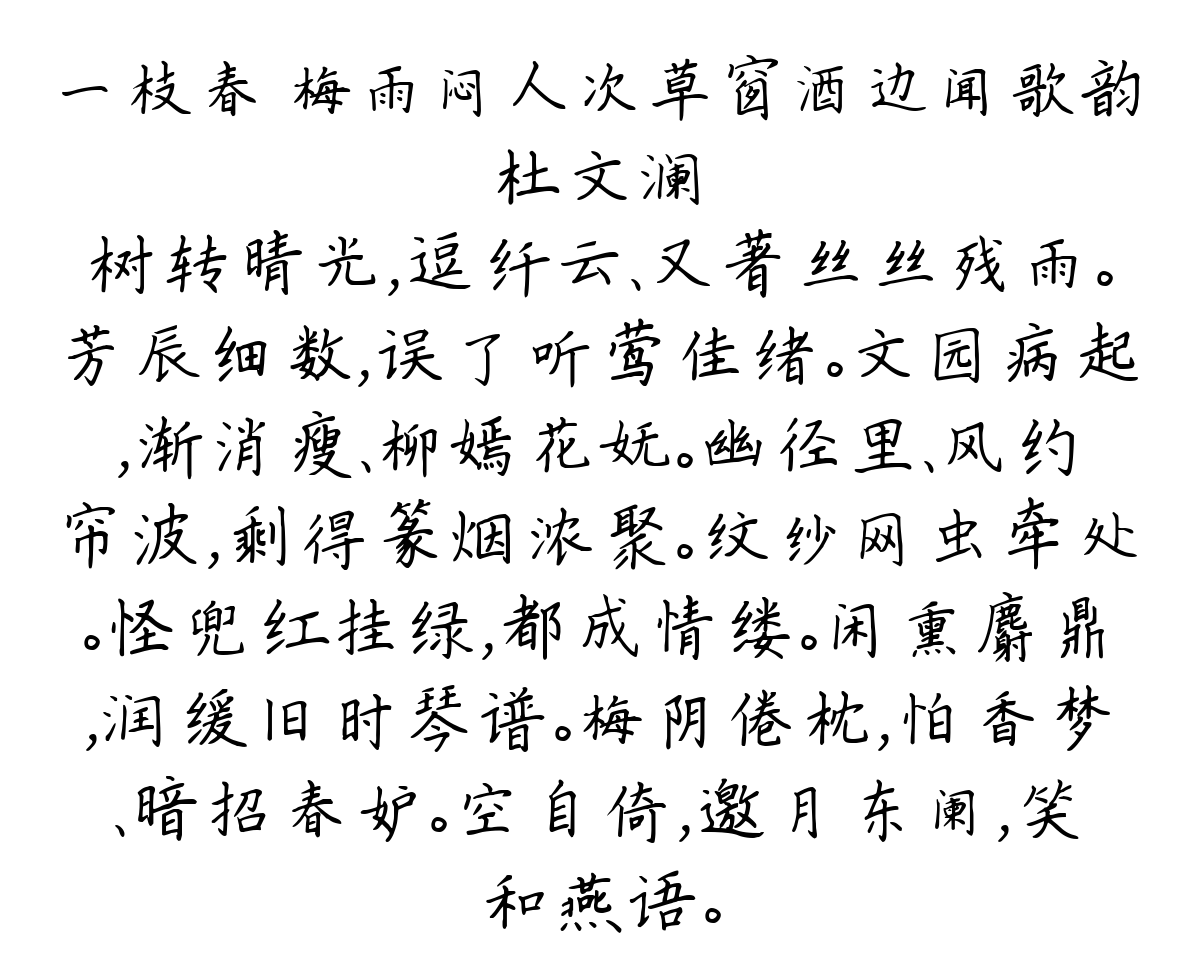 一枝春 梅雨闷人次草窗酒边闻歌韵
杜文澜
树转晴光,逗纤云、又著丝丝残雨。
芳辰细数,误了听莺佳绪。文园病起
,渐消瘦、柳嫣花妩。幽径里、风约
帘波,剩得篆烟浓聚。纹纱网虫牵处
。怪兜红挂绿,都成情缕。闲熏麝鼎
,润缓旧时琴谱。梅阴倦枕,怕香梦
、暗招春妒。空自倚,邀月东阑,笑
和燕语。